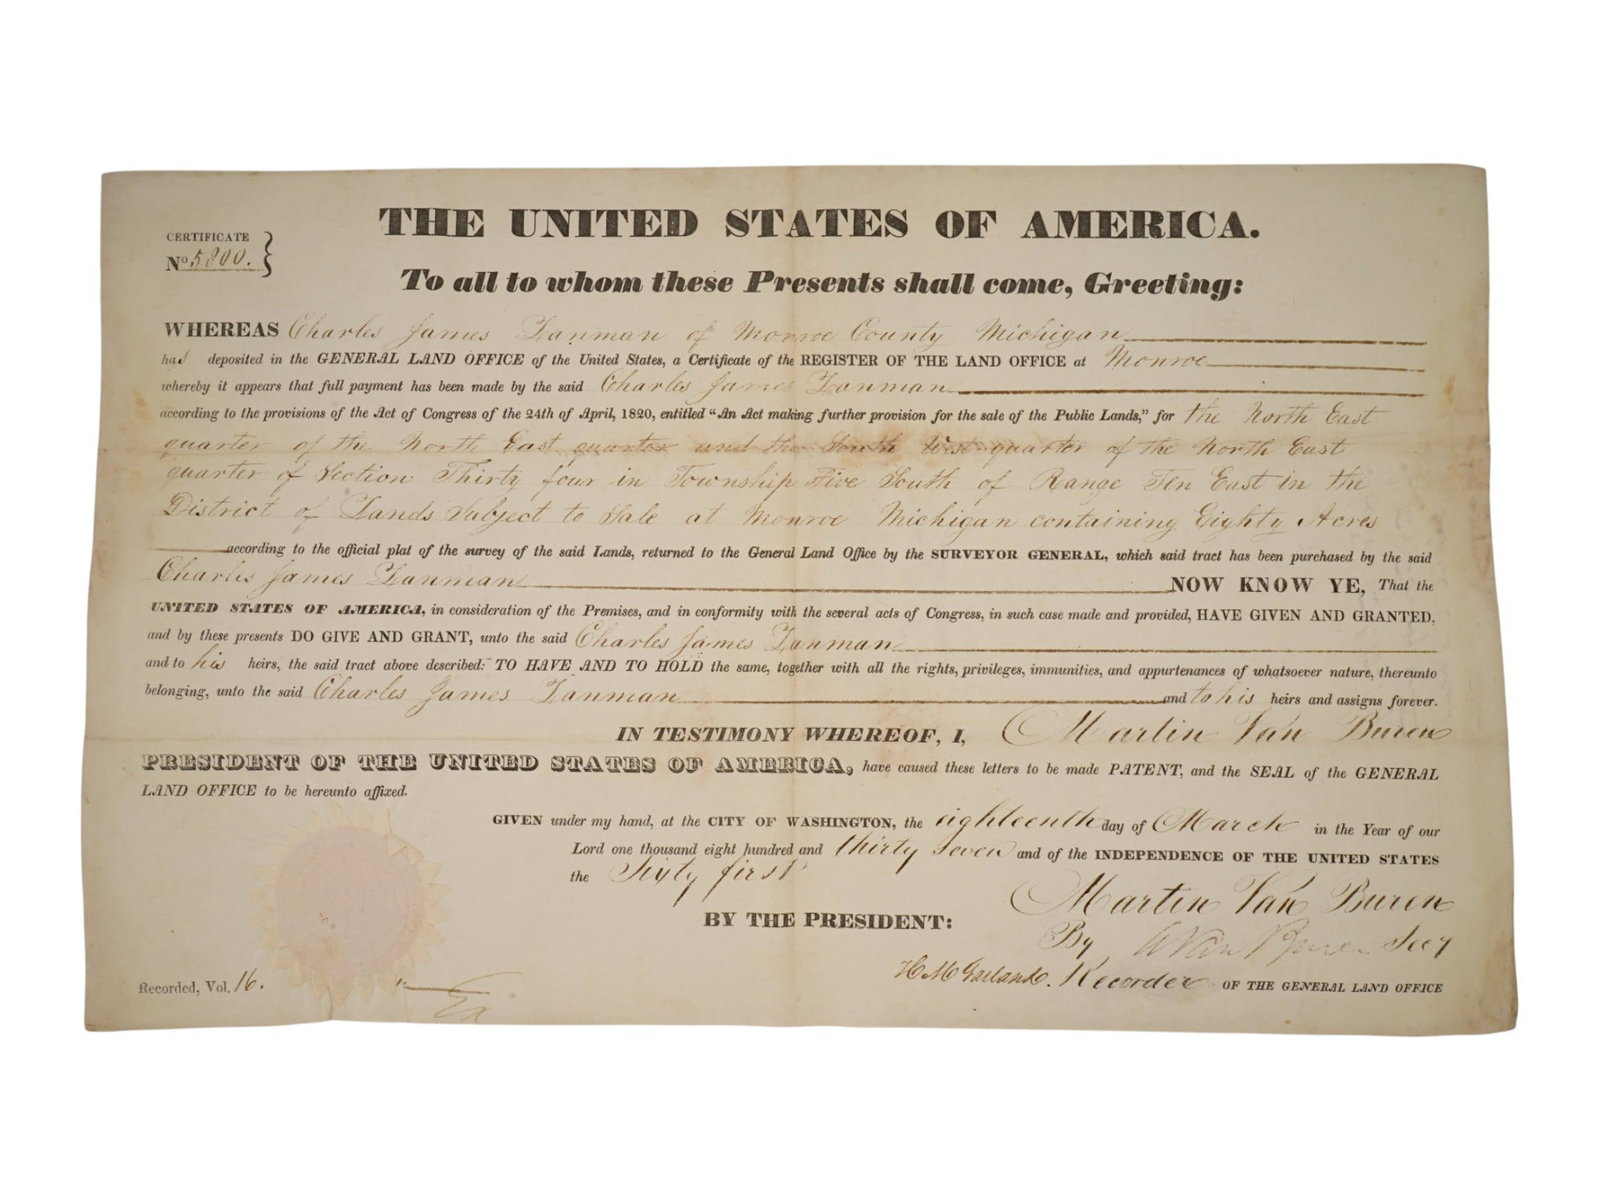 THE UNITED STATES OF AMERICA.
CERTIFICATE
No. 5800.
To all to whom these Presents shall come, Greeting:
WHEREAS Charles James Lanman of Monroe County Michigan
has deposited in the GENERAL LAND OFFICE of the United States, a Certificate of the REGISTER OF THE LAND OFFICE at Monroe
whereby it appears that full payment has been made by the said Charles James Lanman
according to the provisions of the Act of Congress of the 24th of April, 1820, entitled "An Act making further provision for the sale of the Public Lands," for the North East
quarter of the North East quarter and the South West quarter of the North East
quarter of Section Thirty four in Township Five South of Range Ten East in the
District of Lands Subject to Sale at Monroe Michigan containing Eighty Acres
according to the official plat of the survey of the said Lands, returned to the General Land Office by the SURVEYOR GENERAL, which said tract has been purchased by the said
Charles James Lanman NOW KNOW YE, That the
UNITED STATES OF AMERICA, in consideration of the Premises, and in conformity with the several acts of Congress, in such case made and provided, HAVE GIVEN AND GRANTED,
and by these presents DO GIVE AND GRANT, unto the said Charles James Lanman
and to his heirs, the said tract above described: TO HAVE AND TO HOLD the same, together with all the rights, privileges, immunities, and appurtenances of whatsoever nature, thereunto
belonging, unto the said Charles James Lanman and to his heirs and assigns forever.
IN TESTIMONY WHEREOF, I, Martin Van Buren
PRESIDENT OF THE UNITED STATES OF AMERICA, have caused these letters to be made PATENT, and the SEAL of the GENERAL
LAND OFFICE to be hereunto affixed.
GIVEN under my hand, at the CITY OF WASHINGTON, the eighteenth day of March in the Year of our
Lord one thousand eight hundred and thirty seven and of the INDEPENDENCE OF THE UNITED STATES
the Sixty first
BY THE PRESIDENT: Martin Van Buren
By A Van Buren Secy
H. M. Garland. Recorder OF THE GENERAL LAND OFFICE
Recorded, Vol. 16.
Ex